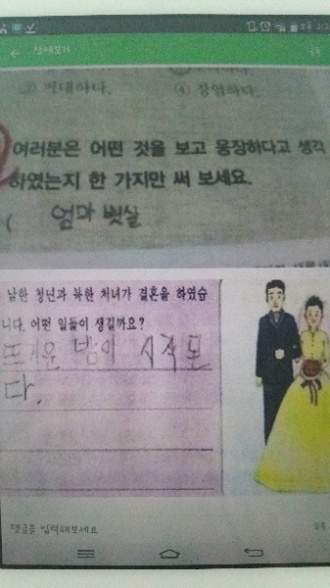 상세보기
② 거대하다. ④ 장엄하다.
여러분은 어떤 것을 보고 웅장하다고 생각
하였는지 한 가지만 써 보세요.
( 엄마 뱃살
남한 청년과 북한 처녀가 결혼을 하였습
니다. 어떤 일들이 생길까요?
뜨거운 밤이 시작 된
다.
댓글을 입력해보세요